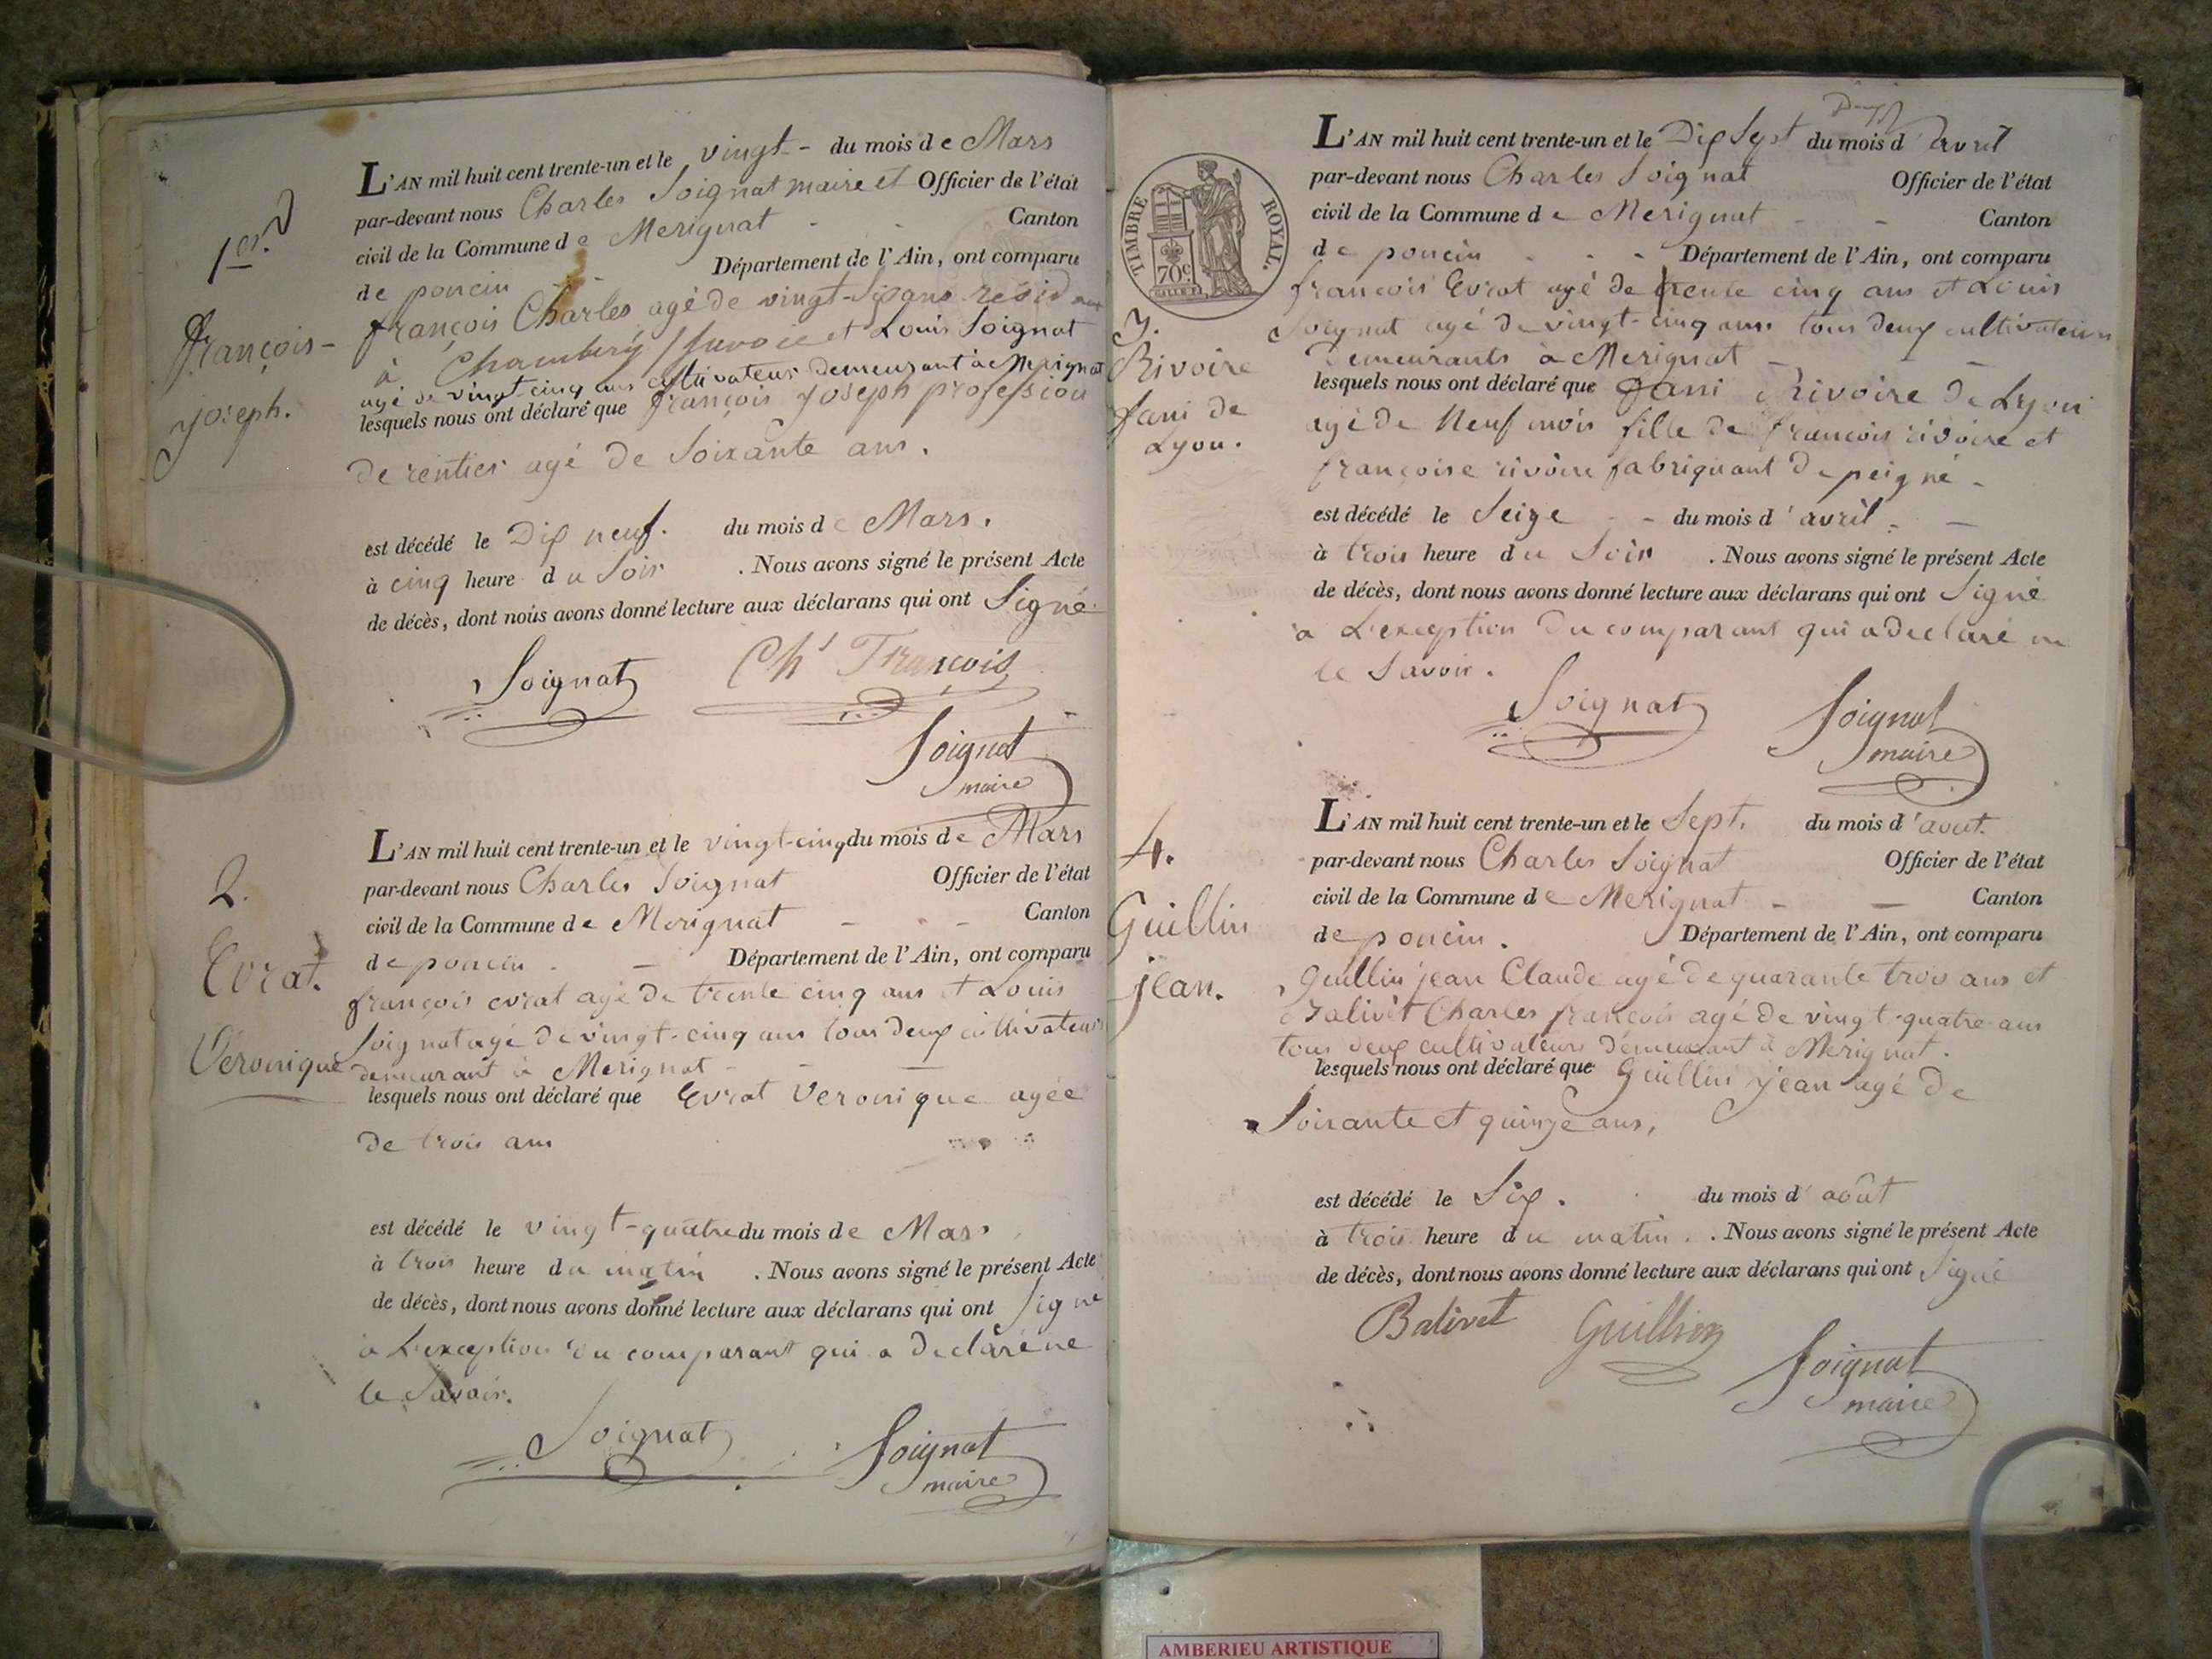 1er.
François-
joseph.
L'AN mil huit cent trente-un et le vingt - du mois de Mars
par-devant nous Charles Soignat maire et Officier de l'état
civil de la Commune de Merignat - - Canton
de poncin Département de l'Ain, ont comparu
françois Charles agé de vingt-six ans résidant
à Chambéry / Savoie et Louis Soignat
agé de vingt-cinq ans cultivateur demeurant à Merignat
lesquels nous ont déclaré que françois joseph profession
de rentier agé de Soixante ans.
est décédé le Dix neuf. du mois de Mars.
à cinq heure du Soir . Nous avons signé le présent Acte
de décès, dont nous avons donné lecture aux déclarans qui ont Signé.
Soignat Ch' François
Soignat
maire
2.
Evrat.
Véronique
L'AN mil huit cent trente-un et le vingt-cinq du mois de Mars
par-devant nous Charles Soignat Officier de l'état
civil de la Commune de Merignat - - - Canton
de poncin - - Département de l'Ain, ont comparu
françois evrat agé de trente cinq ans et Louis
Soignat agé de vingt-cinq ans tous deux cultivateurs
demeurant à Merignat -
lesquels nous ont déclaré que Evrat Veronique agée
de trois ans
est décédé le vingt-quatre du mois de Mars
à trois heure du matin . Nous avons signé le présent Acte
de décès, dont nous avons donné lecture aux déclarans qui ont Signé
à L'exception du comparant qui a declaré ne
le Savoir.
Soignat Soignat
maire
TIMBRE ROYAL.
70c
3.
Rivoire
fani de
Lyon.
L'AN mil huit cent trente-un et le Dix Sept du mois d'avril
par-devant nous Charles Soignat Officier de l'état
civil de la Commune de Merignat - - Canton
de poncin - - - Département de l'Ain, ont comparu
françois Evrat agé de trente cinq ans et Louis
Soignat agé de vingt-cinq ans tous deux cultivateurs
Demeurants à Merignat - -
lesquels nous ont déclaré que fani Rivoire De Lyon
agé de Neuf mois fille de françois rivoire et
françoise rivoire fabriquant De peigné -
est décédé le Seize - - du mois d'avril - -
à trois heure du Soir . Nous avons signé le présent Acte
de décès, dont nous avons donné lecture aux déclarans qui ont Signé
a L'exception Du comparant qui a declaré ne
le Savoir.
Soignat Soignat
maire
4.
Guillin
jean.
L'AN mil huit cent trente-un et le Sept. du mois d'aout.
par-devant nous Charles Soignat Officier de l'état
civil de la Commune de Merignat - - Canton
de poncin. Département de l'Ain, ont comparu
Guillin jean Claude agé de quarante trois ans et
Balivet Charles françois agé de vingt-quatre ans
tous deux cultivateurs demeurant à Merignat.
lesquels nous ont déclaré que Guillin jean agé de
Soixante et quinze ans,
est décédé le Six. du mois d'août
à trois heure du matin. . Nous avons signé le présent Acte
de décès, dont nous avons donné lecture aux déclarans qui ont Signé
Balivet Guillin
Soignat
maire
AMBERIEU ARTISTIQUE